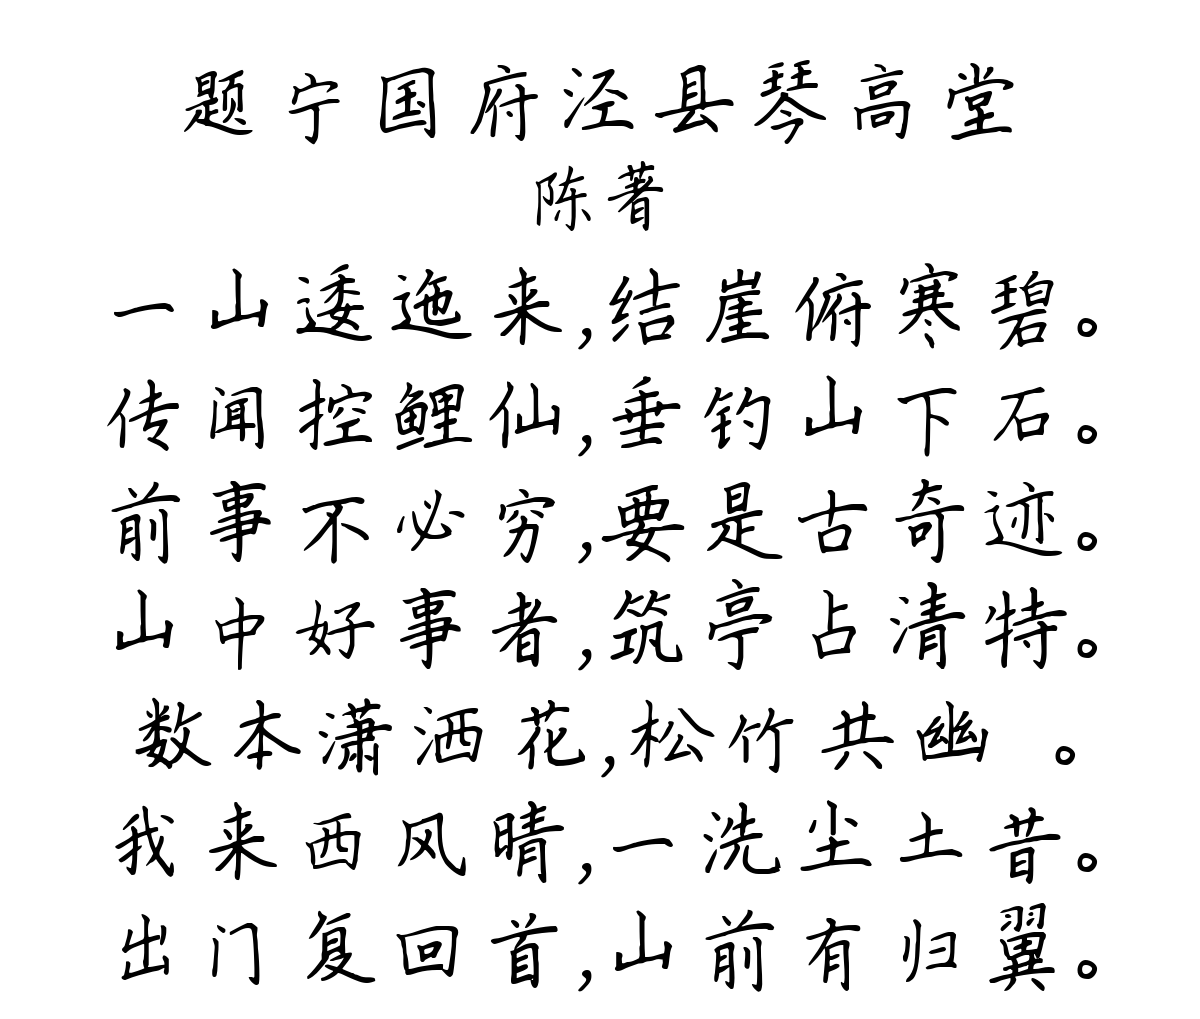 题宁国府泾县琴高堂
陈著
一山逶迤来,结崖俯寒碧。
传闻控鲤仙,垂钓山下石。
前事不必穷,要是古奇迹。
山中好事者,筑亭占清特。
数本潇洒花,松竹共幽 。
我来西风晴,一洗尘土昔。
出门复回首,山前有归翼。